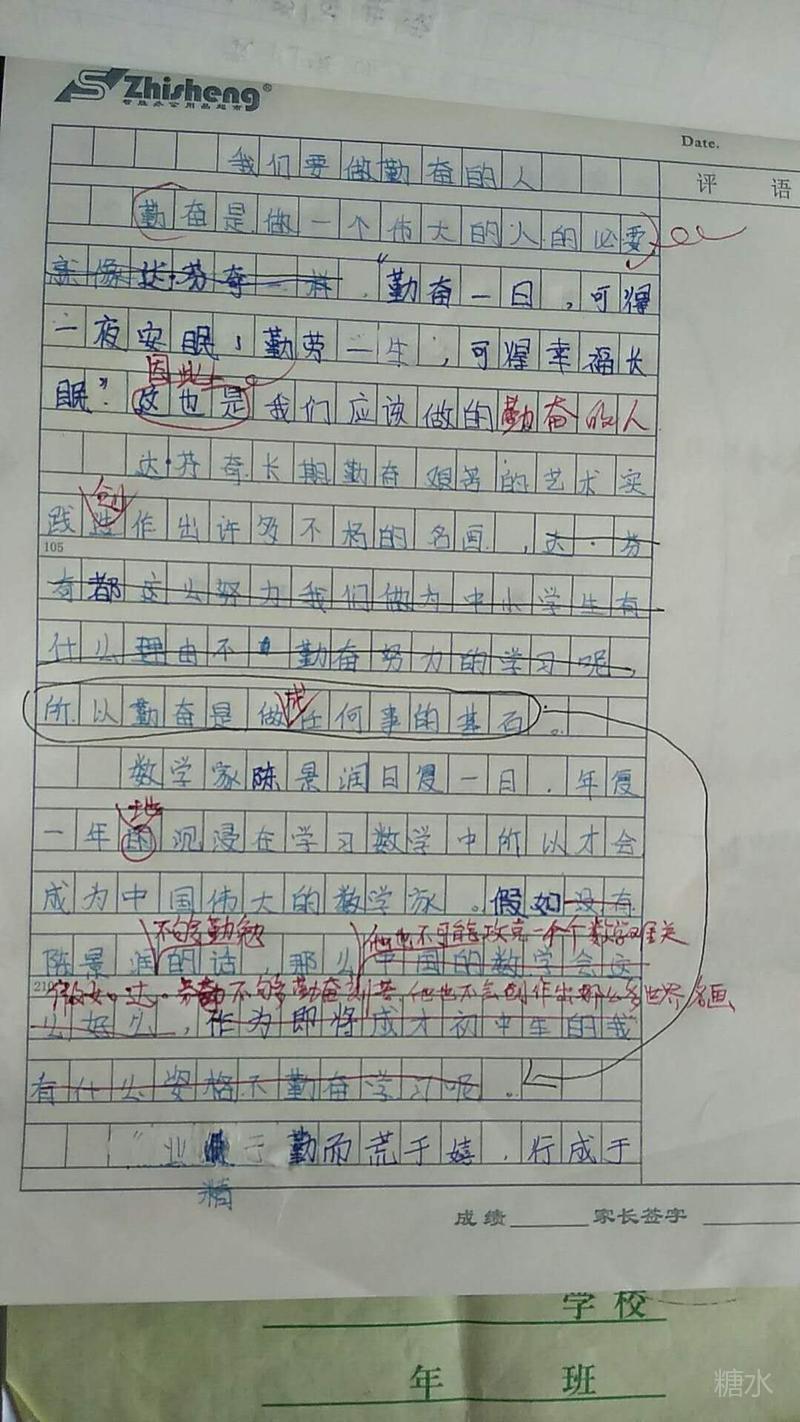 Zhisheng®
智胜办公用品超市
Date.
评 语
我们要做勤奋的人
勤奋是做一个伟大的人的必要
就像达·芬奇一样，“勤奋一日，可得
一夜安眠；勤劳一生，可得幸福长
因此
眠”。这也是我们应该做的勤奋的人
达·芬奇长期勤奋艰苦的艺术实
创
践造作出许多不朽的名画，达·芬
105
奇都这么努力我们做为中小学生有
什么理由不勤奋努力的学习呢，
成
所以勤奋是做任何事的基石。
数学家陈景润日复一日，年复
地
一年的沉浸在学习数学中所以才会
成为中国伟大的数学家。假如没有
不够勤勉 他也不可能攻克一个个数学难关
陈景润的话，那么中国的数学会这
210
假如达·芬奇不够勤奋刻苦，他也不会创作出那么多世界名画
么好么，作为即将成才初中生的我
有什么资格不勤奋学习呢。
“业 于勤而荒于嬉，行成于
精
成绩 家长签字
学校
年 班
糖水